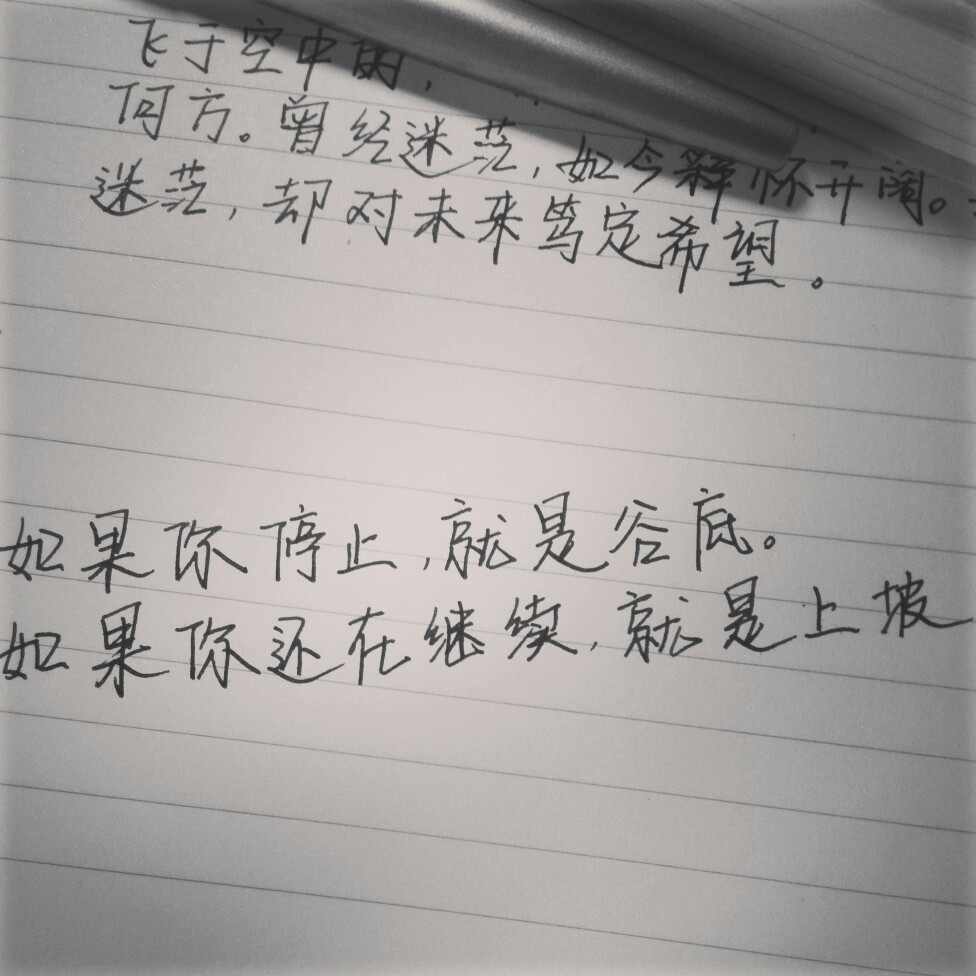 飞于空中的，
何方。曾经迷茫，如今释怀开阔。
迷茫，却对未来笃定希望。
如果你停止，就是谷底。
如果你还在继续，就是上坡